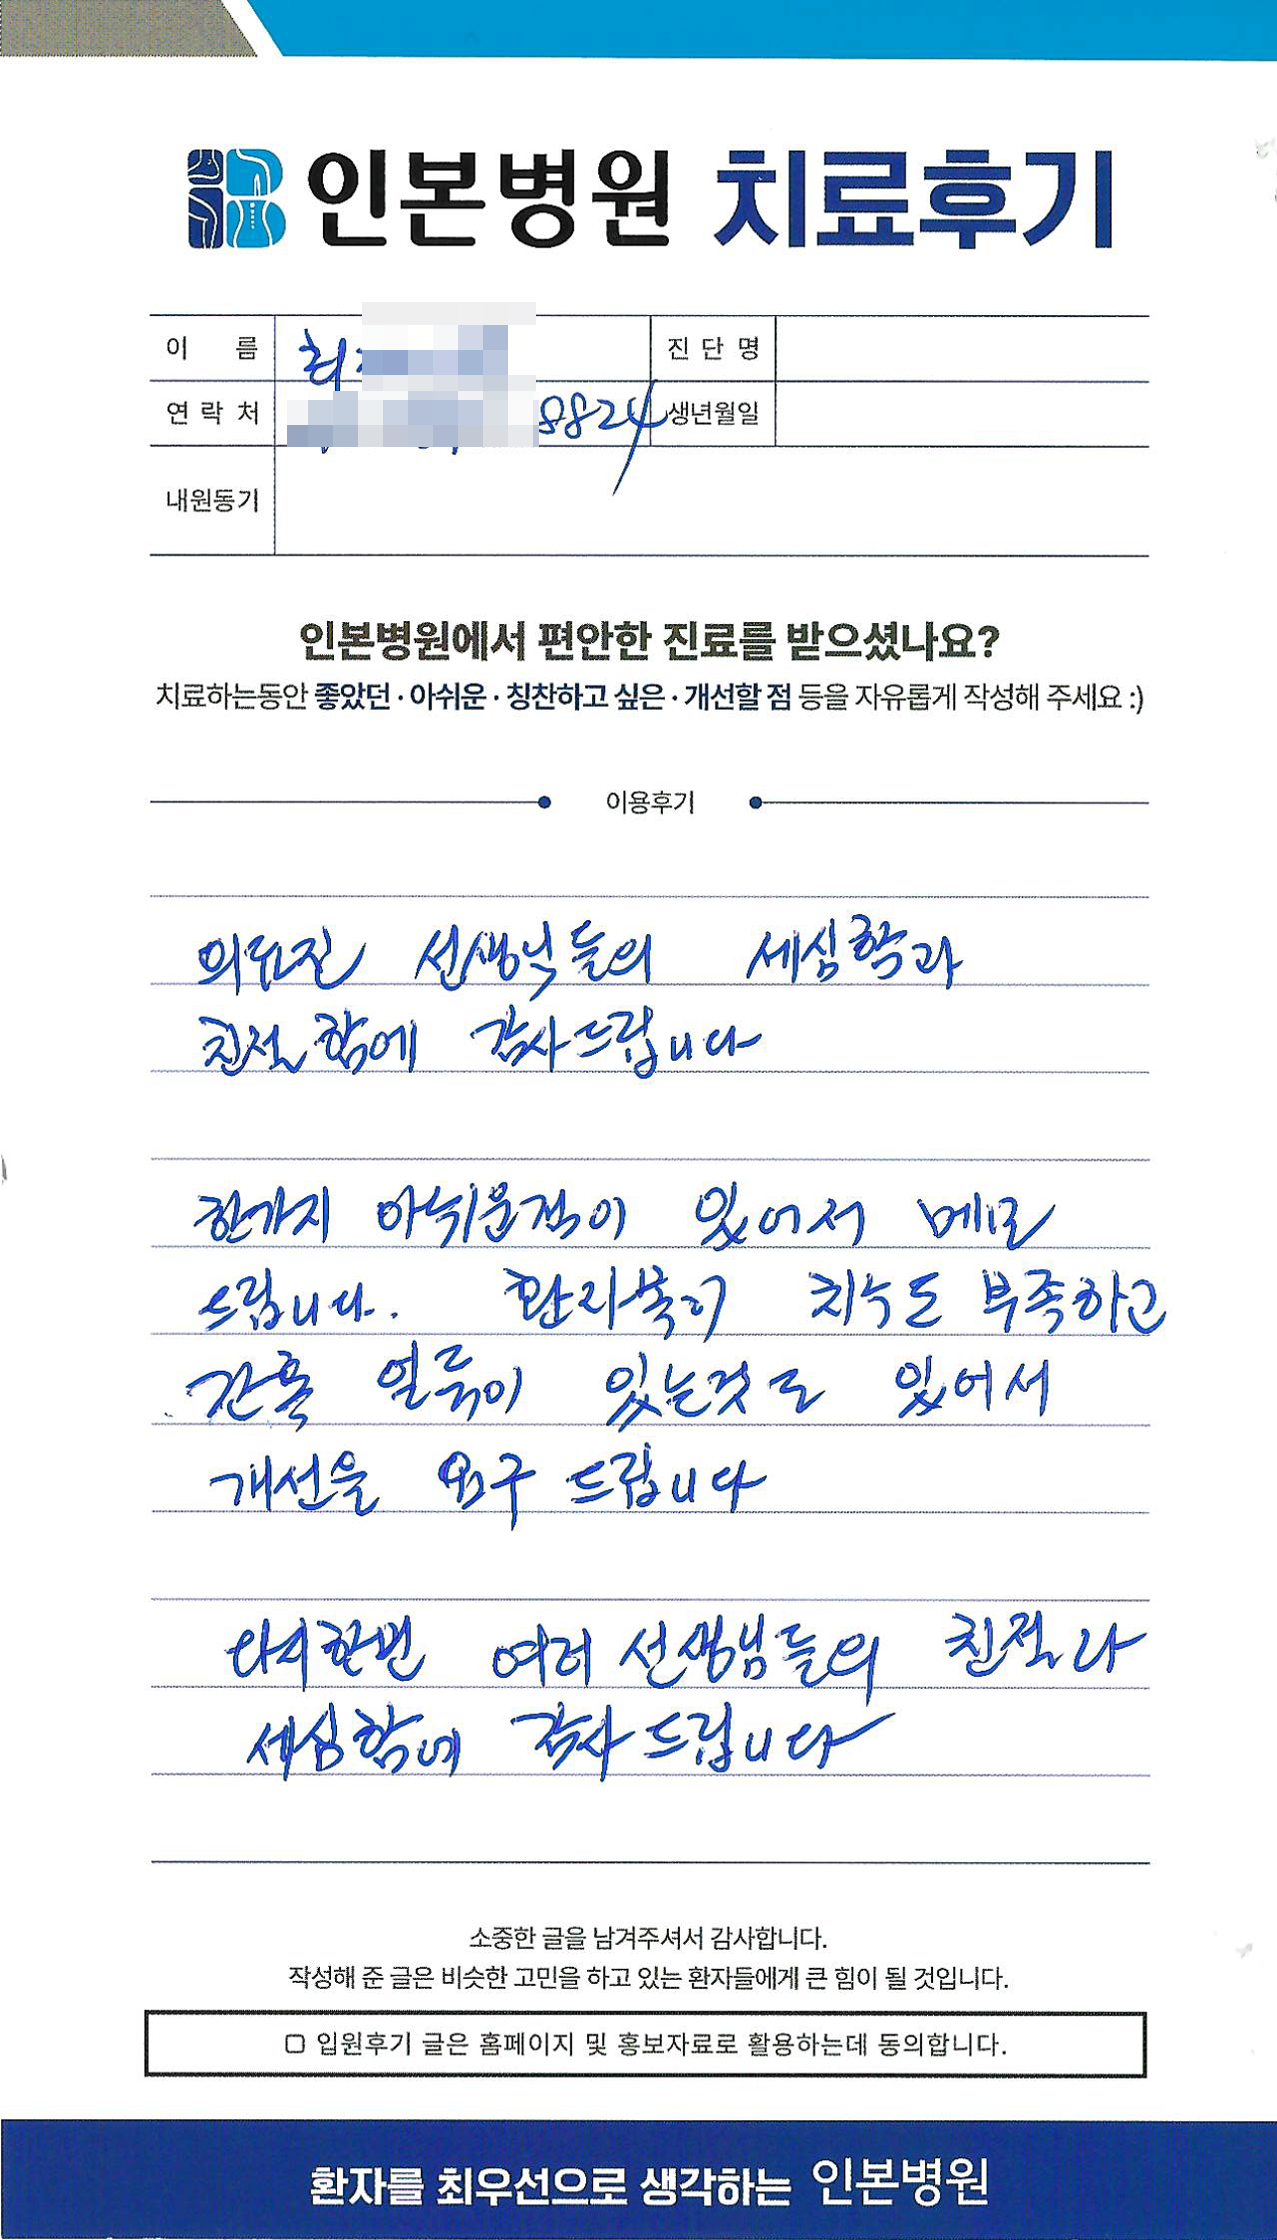 인본병원 치료후기
이 름 최 진 단 명
연 락 처 8824 생년월일
내원동기
인본병원에서 편안한 진료를 받으셨나요?
치료하는동안 좋았던 · 아쉬운 · 칭찬하고 싶은 · 개선할 점 등을 자유롭게 작성해 주세요 :)
이용후기
의료진 선생님들의 세심함과
친절함에 감사드립니다
한가지 아쉬운점이 있어서 메모
드립니다. 환자복이 치수도 부족하고
간혹 얼룩이 있는것도 있어서
개선을 요구 드립니다
다시한번 여러 선생님들의 친절과
세심함에 감사드립니다
소중한 글을 남겨주셔서 감사합니다.
작성해 준 글은 비슷한 고민을 하고 있는 환자들에게 큰 힘이 될 것입니다.
입원후기 글은 홈페이지 및 홍보자료로 활용하는데 동의합니다.
환자를 최우선으로 생각하는 인본병원